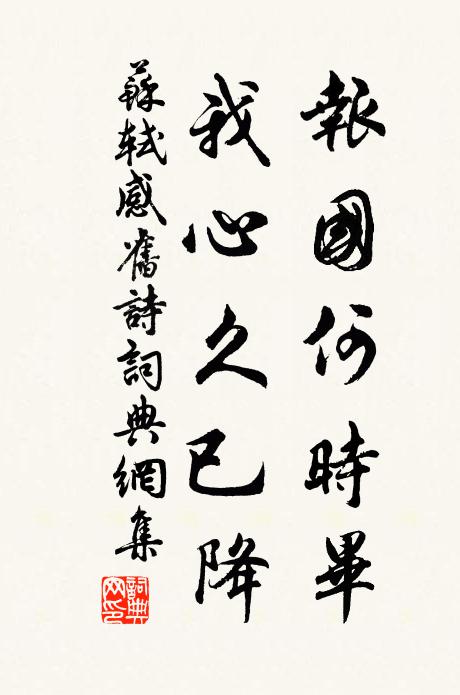 報國何時畢
我心久已降
蘇軾感舊詩詞典網集
詞典网印